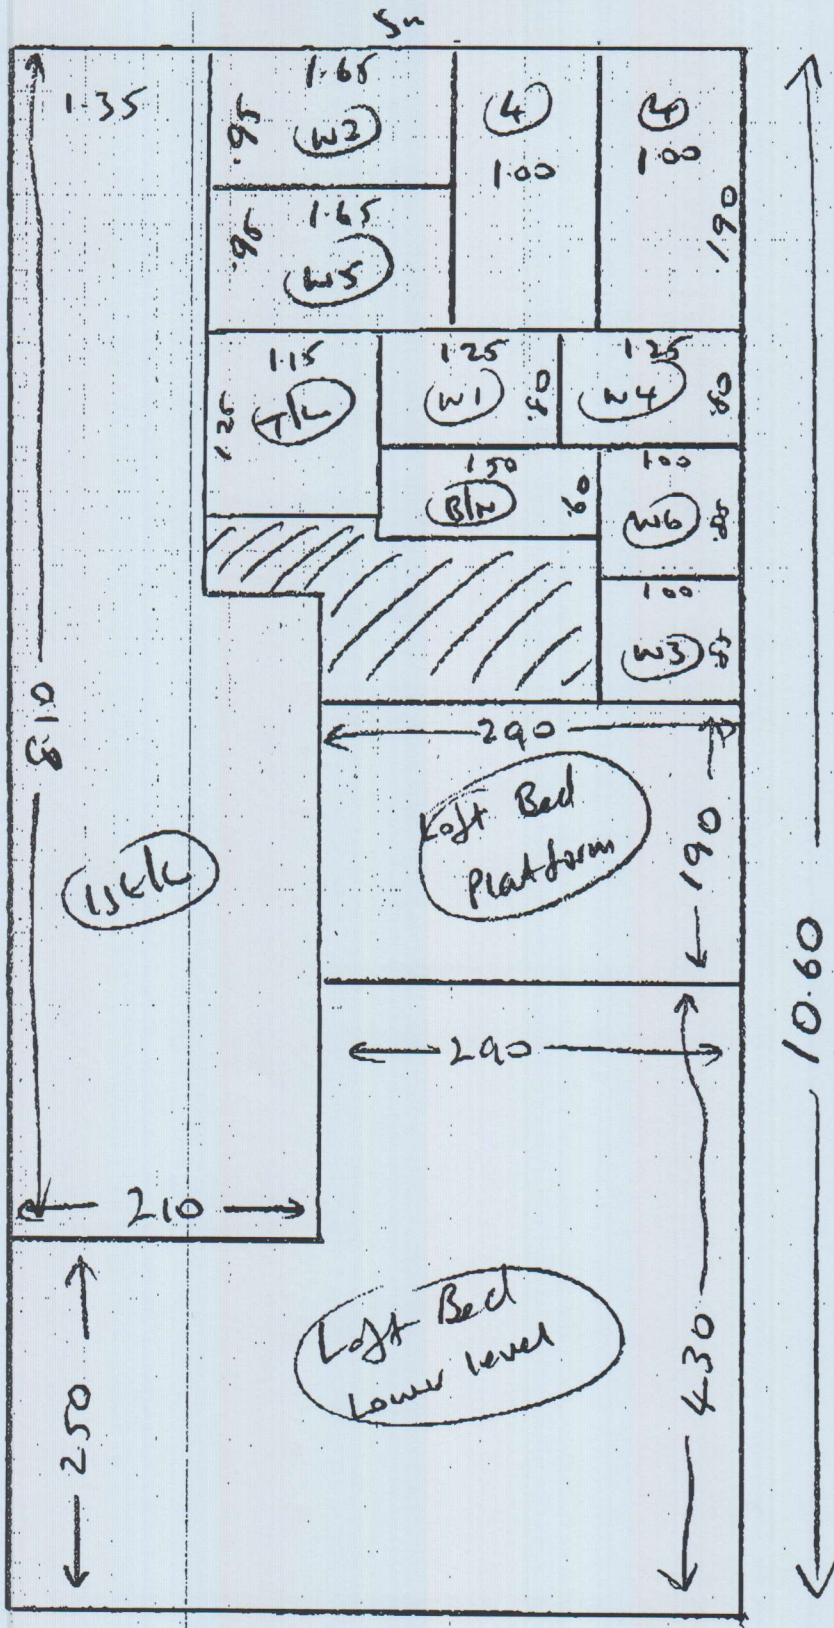 5m
1.35
1.65
.95
W2
4
1.00
4
1.00
1.90
1.65
.95
W5
1.15
1.25
1.25
W1
.80
1.25
W4
.80
1.50
B/N
.60
1.00
W6
.85
1.00
W3
.85
8.10
290
Loft Bed
Platform
190
10.60
290
210
Loft Bed
Lower level
250
430